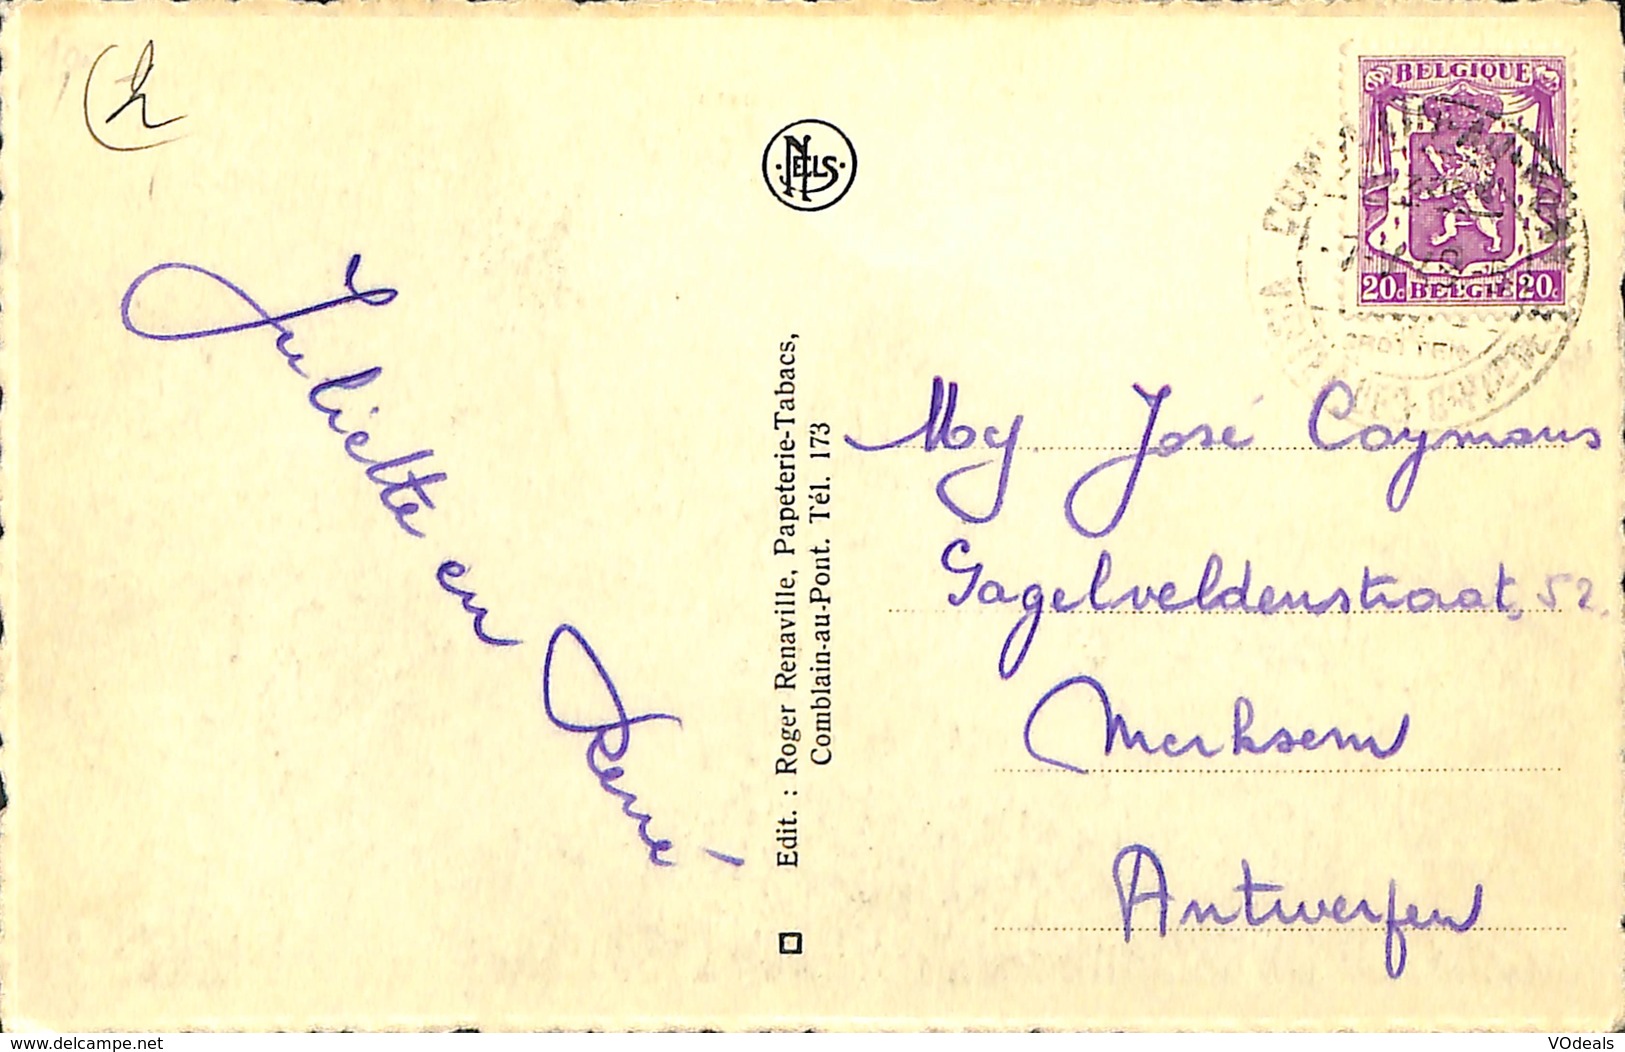 BELGIQUE
20c BELGIE 20c
NELS
Juliette en René
Edit. : Roger Renaville, Papeterie-Tabacs,
Comblain-au-Pont. Tél. 173
Mej José Caymans
Gagelveldenstraat, 52.
Merksem
Antwerpen
www.delcampe.net
VOdeals